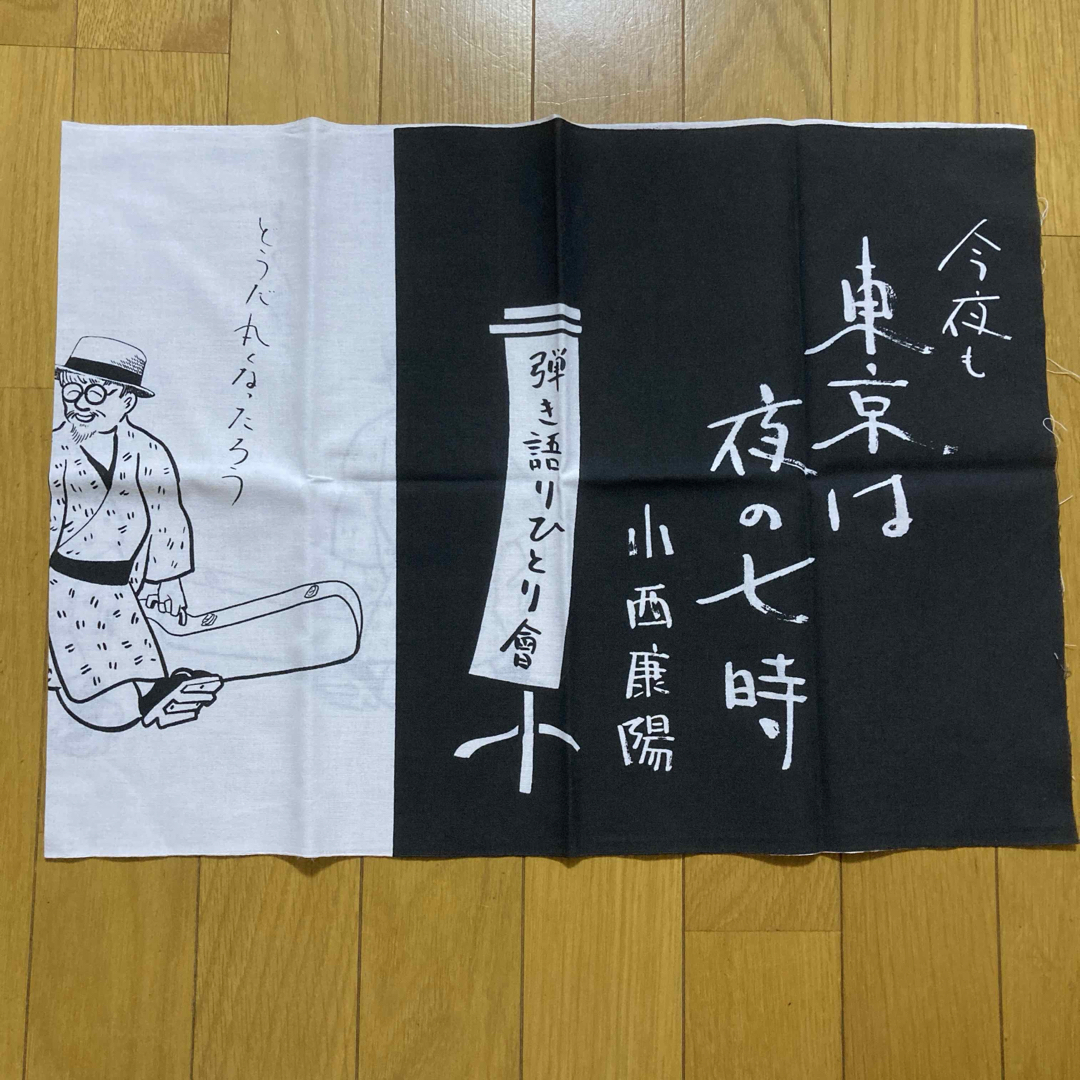 今夜も
東京は
夜の七時
小西康陽
弾き語りひとり會
とうだ丸くなったろう